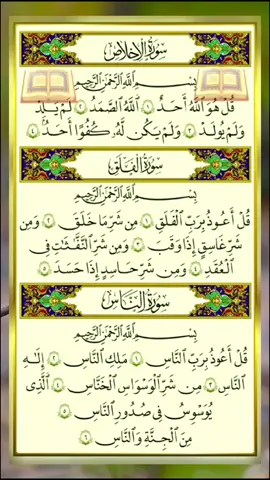 سُورَةُ الإِخْلَاصِ
بِسْمِ اللَّهِ الرَّحْمَٰنِ الرَّحِيمِ
قُلْ هُوَ اللَّهُ أَحَدٌ ١ اللَّهُ الصَّمَدُ ٢ لَمْ يَلِدْ
وَلَمْ يُولَدْ ٣ وَلَمْ يَكُن لَّهُ كُفُوًا أَحَدٌ ٤
سُورَةُ الْفَلَقِ
بِسْمِ اللَّهِ الرَّحْمَٰنِ الرَّحِيمِ
قُلْ أَعُوذُ بِرَبِّ الْفَلَقِ ١ مِن شَرِّ مَا خَلَقَ ٢ وَمِن
شَرِّ غَاسِقٍ إِذَا وَقَبَ ٣ وَمِن شَرِّ النَّفَّٰثَٰتِ فِي
الْعُقَدِ ٤ وَمِن شَرِّ حَاسِدٍ إِذَا حَسَدَ ٥
سُورَةُ النَّاسِ
بِسْمِ اللَّهِ الرَّحْمَٰنِ الرَّحِيمِ
قُلْ أَعُوذُ بِرَبِّ النَّاسِ ١ مَلِكِ النَّاسِ ٢ إِلَٰهِ
النَّاسِ ٣ مِن شَرِّ الْوَسْوَاسِ الْخَنَّاسِ ٤ الَّذِي
يُوَسْوِسُ فِي صُدُورِ النَّاسِ ٥
مِنَ الْجِنَّةِ وَالنَّاسِ ٦